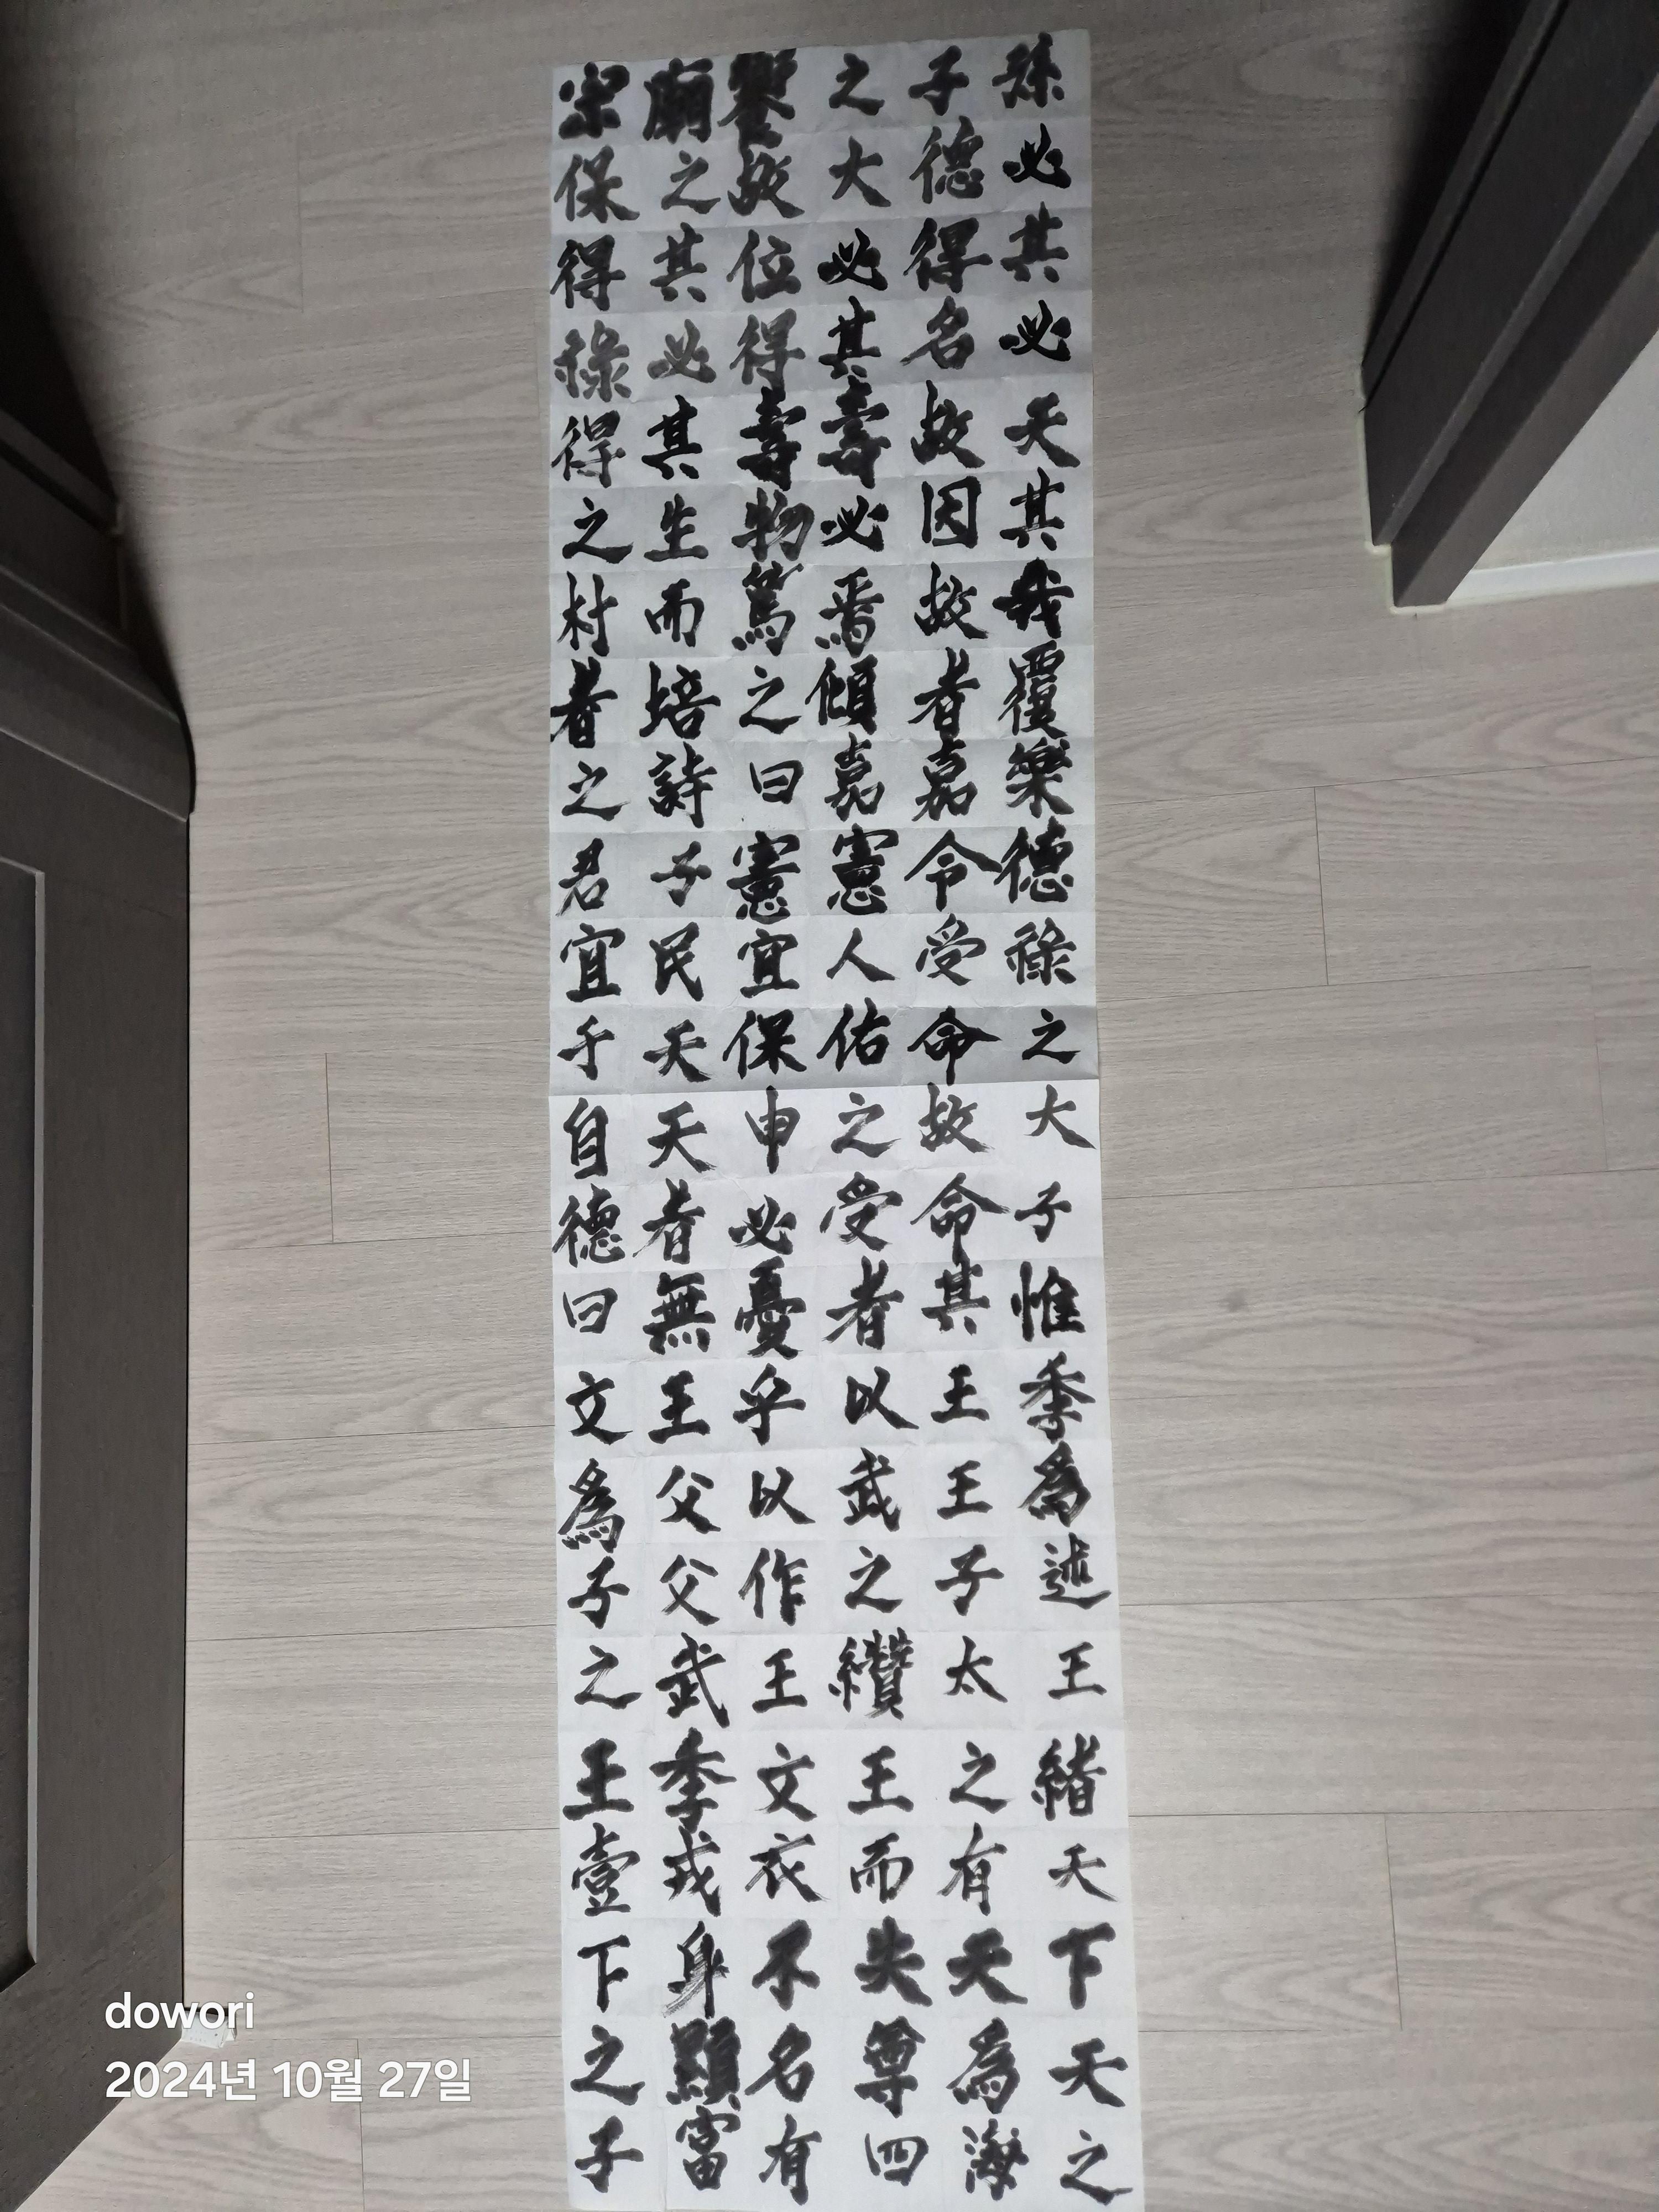 宗廟饗之子孫
保之故大德必
得其位必得其
祿必得其名必
得其壽壽故天
之生物必因其
材而篤焉故栽
者培之傾者覆
之詩曰嘉嘉樂
君子憲憲令德
宜民宜人受祿
于天保佑命之
自天申之故大
德者必受命子
曰無憂者其惟
文王乎以王季
爲父以武王爲
子父作之子述
之武王纘太王
王季文王之緒
壹戎衣而有天
下身不失天下
之顯名尊爲天
子富有四海之
dowori
2024년 10월 27일